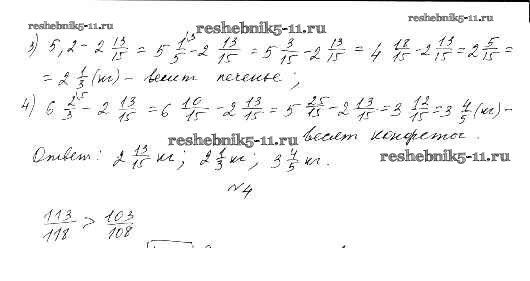 reshebnik5-11.ru
reshebnik5-11.ru
3) 5,2 - 2 13/15 = 5 1/5 \3 - 2 13/15 = 5 3/15 - 2 13/15 = 4 18/15 - 2 13/15 = 2 5/15 =
= 2 1/3 (кг) - весит печенье;
4) 6 2/3 \5 - 2 13/15 = 6 10/15 - 2 13/15 = 5 25/15 - 2 13/15 = 3 12/15 = 3 4/5 (кг) -
reshebnik5-11.ru весят конфеты.
Ответ: 2 13/15 кг; 2 1/3 кг; 3 4/5 кг. reshebnik5-11.ru
№4
113/118 > 103/108